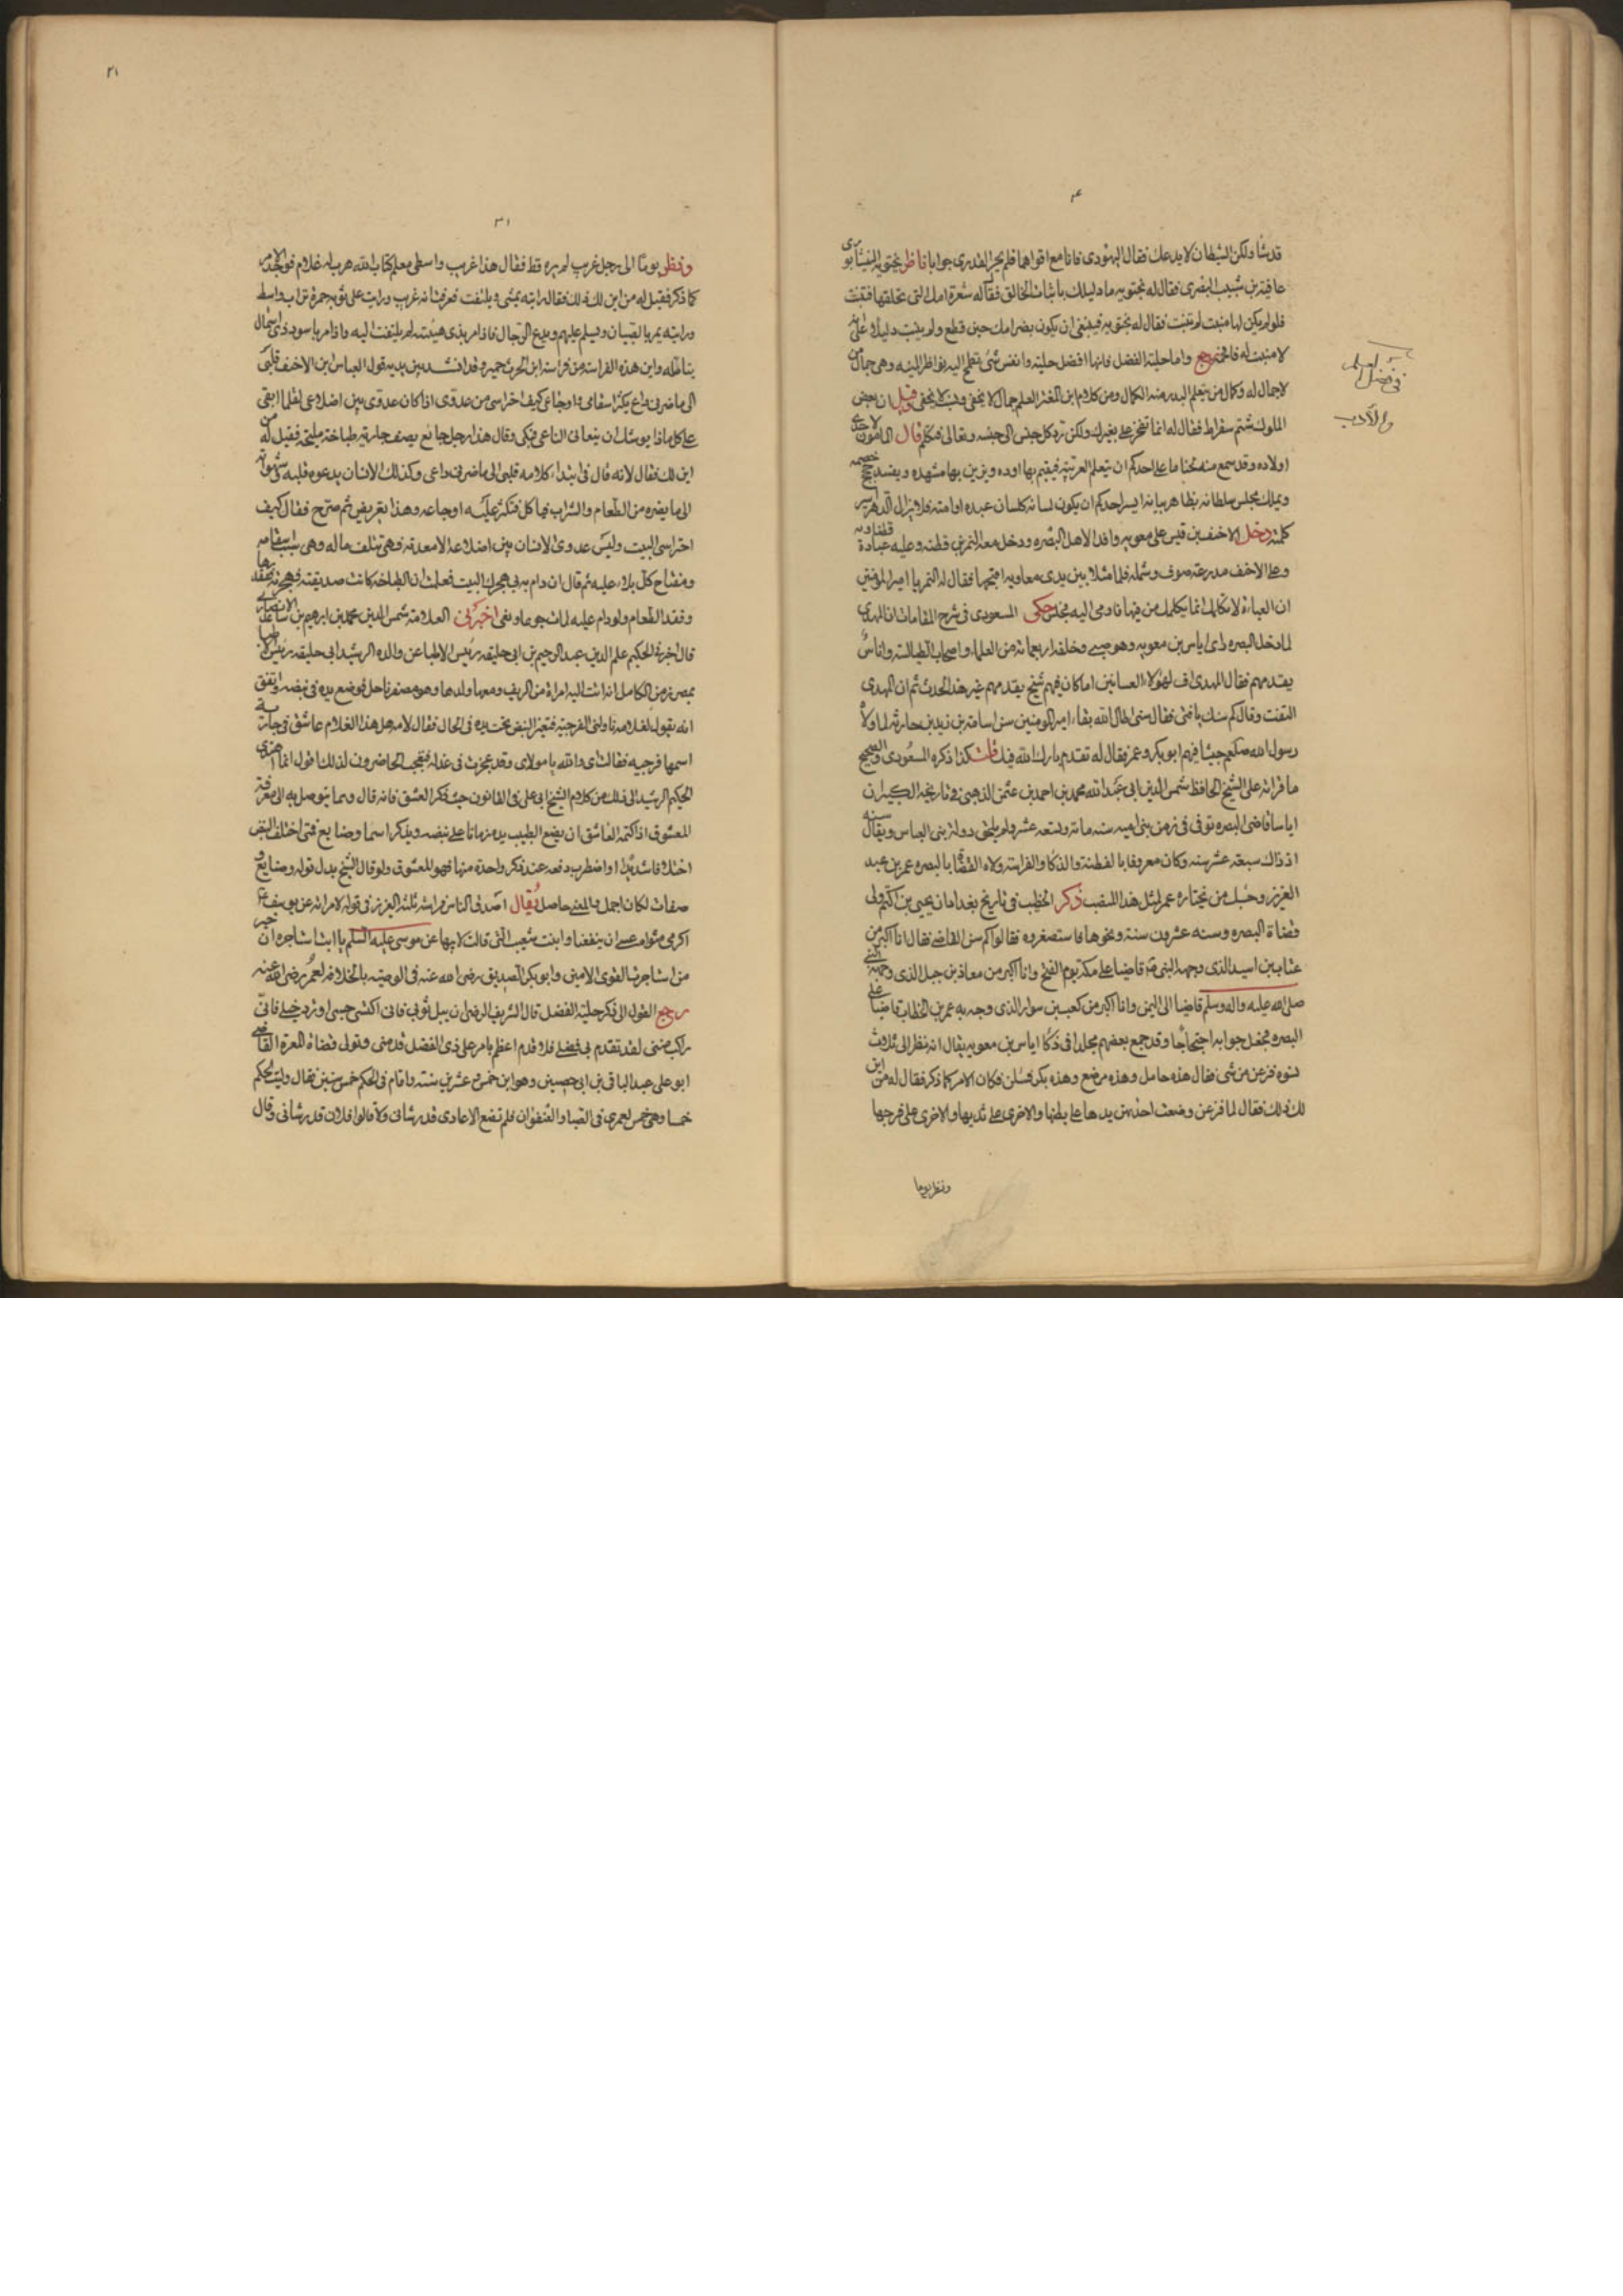 ٣٠
قد شا ولكن الشيطان لا يدعك فقال اليهودى فانا مع اقواهما فلم يحر القدرى جوابا ناظر بختويه النيشابورى ابو
عافية بن شبيب البصرى فقال له بختويه ما دليلك باثبات الخالق فقال له شعرة امك التى تحلقها فتنبت
فلو لم يكن لها منبت لم تنبت فقال له بختويه فينبغى ان يكون بضر امك حين قطع ولم ينبت دليلا على انه
لا منبت له فافحم رجع واما حلية الفضل فانها افضل حلية وانفس شى تطمح اليه نواظر البنيه وهى جمال من
لا جمال له وكمال من يتعلم البدر منه الكمال ومن كلام ابن المعتز العلم جمال لا يخفى ونسب لا يجفى وقيل ان بعض
الملوك شتم سقراط فقال له انما تفخر على بغيرك ولكن ترد كل جنس الى جنسه وتعالى فتكلم قال المامون لاحدى
اولاده وقد سمع منه لحنا ما على احدكم ان يتعلم العربية فيقيم بها اوده ويزين بها مشهده ويفند حجج خصمه
ويملك مجلس سلطانه بظاهر بيانه ايسر احدكم ان يكون لسانه كلسان عبده او امته فلا يزال الدهر اسير
كلمته دخل الاحنف بن قيس على معويه وافدا لاهل البصره ودخل معه النمر بن قطنه وعليه عباءة قطنا ونه
وعلى الاحنف مدرعة صوف وشمله فلما مثلا بين يدى معاويه اقتحمهما فقال له النمر يا امير المومنين
ان العباءة لا تكلمك انما يكلمك من فيها فاومى اليه فجلس حكى المسعودى فى شرح المقامات ان المهدى
لما دخل البصره راى اياس بن معويه وهو صبى وخلفه اربعمائة من العلماء واصحاب الطيالسة واناس
يقدمهم فقال المهدى اف لهولاء العسانين اما كان فيهم شيخ يقدمهم غير هذا الحدث ثم ان المهدى
التفت وقال كم سنك يا فتى فقال سنى اطال الله بقاء امير المومنين سن اسامة بن زيد بن حارثه لما ولاه
رسول الله صلعم جيشا فيهم ابو بكر وعمر فقال له تقدم بارك الله فيك قلت كذا ذكره المسعودى والصحيح
ما قراته على الشيخ الحافظ شمس الدين ابى عبد الله محمد بن احمد بن عثمن الذهبى فى تاريخه الكبير ان
اياسا قاضى البصره توفى فى زمن بنى اميه سنه مائة وتسعه عشر ولم يلحق دولة بنى العباس ويقال سنه
اذ ذاك سبعة عشر سنه وكان معروفا بالفطنة والذكا والفراسة ولاه القضا بالبصره عمر بن عبد
العزيز وحبك من يختاره عمر لمثل هذا المنصب ذكر الخطيب فى تاريخ بغداد ان يحيى بن اكثم ولى
قضاة البصره وسنه عشرون سنة ونحوها فاستصغروه فقالوا كم سن القاضى فقال انا اكبر من
عتاب بن اسيد الذى وجهه النبى قاضيا على مكة يوم الفتح وانا اكبر من معاذ بن جبل الذى وجهه النبى
صلى الله عليه واله وسلم قاضيا الى اليمن وانا اكبر من كعب بن سوار الذى وجه به عمر بن الخطاب قاضيا على
البصره فجعل جوابه احتجاجا وقد جمع بعضهم مجلدا فى ذكا اياس بن معويه يقال انه نظر الى ثلاث
نسوه فزعن من شى فقال هذه حامل وهذه مرضع وهذه بكر فسئلن فكان الامر كما ذكر فقال له من اين
لك ذلك فقال لما فزعن وضعت احداهن يدها على بطنها والاخرى على ثديها والاخرى على فرجها
ونظر يوما
فى فضل العلم
والادب
٢١
٣١
ونظر يوما الى رجل غريب لم يره قط فقال هذا غريب واسطى معلم كتاب الله هرب له غلام فوجد الامر
كما ذكر فقيل له من اين لك ذلك فقال رايته يمشى ويلتفت فعرفت انه غريب ورايت على ثوبه حمرة تراب واسط
ورايته يمر بالصبيان ويسلم عليهم ويدع الرجال فاذا مر بذى هيئته لم يلتفت اليه واذا مر باسود ذى اسمال
يتامله واين هذه الفراسه من فراسة ابن الحرث حميره وقد انشد بين يديه قول العباس ابن الاحنف قلبى
الى ما ضرنى داع يكثر اسقامى واوجاعى كيف احتراسى من عدوى اذا كان عدوى بين اضلاعى لقلما ابقى
على كل ما ذا يوشك ان ينعانى الناعى فبكى وقال هذا رجل جائع يصف جارية طباخة مليحة فقيل له من
اين لك فقال لانه قال فى ابتداء كلامه قلبى الى ما ضرنى داعى وكذلك الانسان يدعوه قلبه وشهواته
الى ما يضره من الطعام والشراب فياكل فتكثر علته واوجاعه وهذا تعريض ثم صرح فقال كيف
احتراسى البيت وليس عدو الانسان بين اضلاعه الا معدته فهى تتلف ماله وهى سبب اسقامه
ومفتاح كل بلاء عليه ثم قال ان دام بى هجرك البيت فعلمت ان الطباخه كانت صديقته فهجرته ففقدها
وفقد الطعام ولو دام عليه لمات جوعا ونعى اخبرنى العلامة شمس الدين محمد بن ابرهيم بن ساعد الانصارى
قال اخبرنى الحكيم علم الدين عبد الرحيم بن ابى حليقه رئيس الاطبا عن والده الرشيد ابى حليقه رئيس الاطبا
بمصر زمن الكامل انه اتت اليه امراة من الريف ومعها ولدها وهو مصفر ناحل فوضع يده فى نبضه واتفق
انه يقول لغلامه ناولنى الفرجية فتغير النبض تحت يده فى الحال فقال لامه هل هذا الغلام عاشق فى جارية
اسمها فرجيه فقالت اى والله يا مولاى وقد عجزت فى عذله فتعجب الحاضرون لذلك اقول انما اهتدى
الحكيم الرشيد الى ذلك من كلام الشيخ ابى على فى القانون حيث ذكر العشق فانه قال ومما يتوصل به الى معرفة
المعشوق اذا كتمه العاشق ان يضع الطبيب يده زمانا على نبضه ويذكر اسما وصنايع فمتى اختلف النبض
اختلافا شديدا واضطرب دفعه عند ذكر واحدة منها فهو المعشوق ولو قال الشيخ بدل قوله وصنايع
صفات لكان اجمل والمعنى حاصل يقال اصدق الناس فراسه ثلثه العزيز فى قوله لامراته عن يوسف ع
اكرمى مثواه عسى ان ينفعنا وابنت شعيب التى قالت لابيها عن موسى عليه السلم يا ابت استاجره ان خير
من استاجرت القوى الامين وابو بكر الصديق رضى الله عنه فى الوصيه بالخلافه لعمر رضى الله عنه
رجع القول الى ذكر حلية الفضل قال الشريف الرضى ان يبل ثوبى فانى اكتسى حسبى او ترد خيلى فانى
راكب منتى لقد تقدم بى فضلى فلا قدم اعظم بامر على ذى الفضل قدمنى وتولى قضاة المعرة القاضى
ابو على عبد الباقى بن ابى حصين وهو ابن خمس وعشرين سنة واقام فى الحكم خمس سنين فقال وليت الحكم
خمسا وهى خمس لعمرى فى الصبا والعنفوان فلم تضع الاعادى قدر شانى ولا قالوا فلان قد رشانى وقال